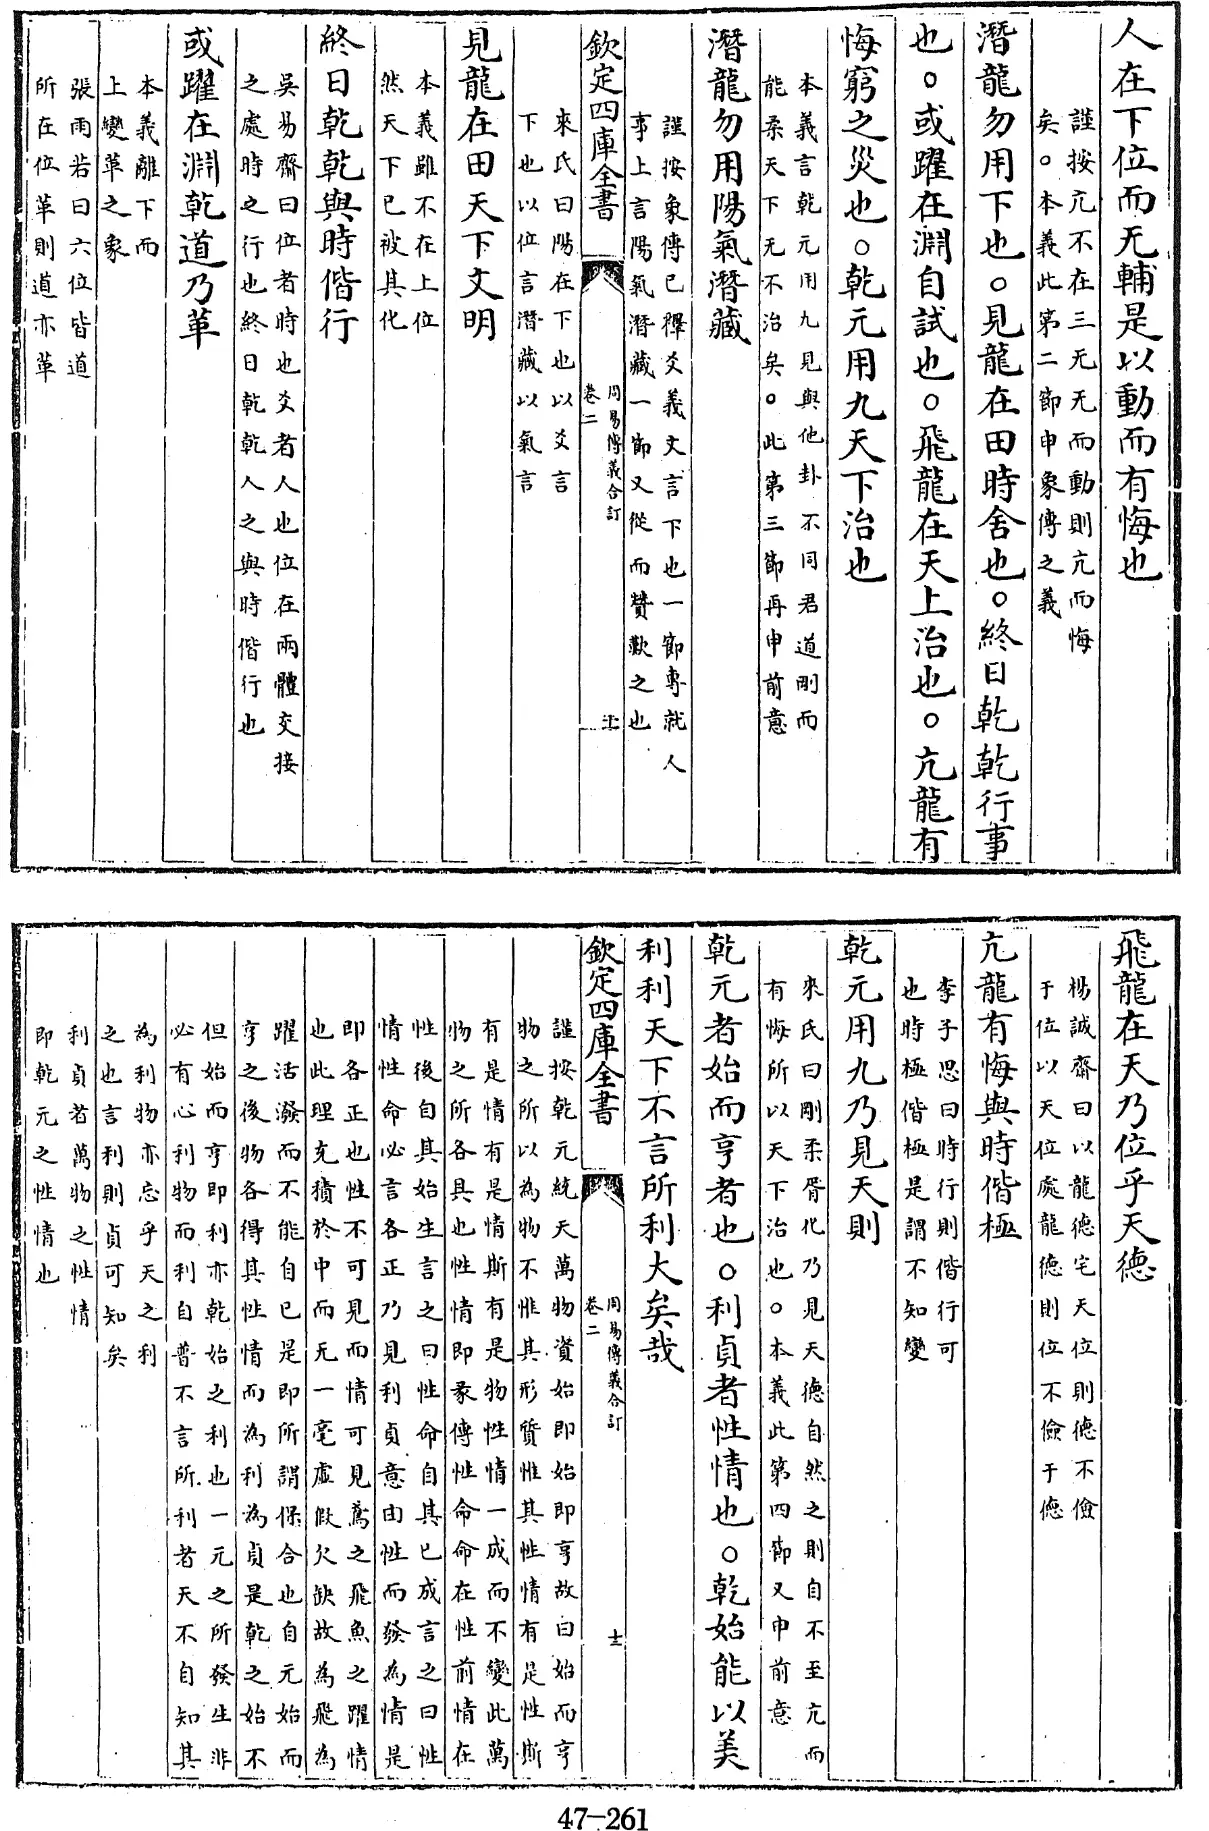 人在下位而无輔是以動而有悔也
謹按亢不在三无无而動則亢而悔
矣。本義此第二節申象傳之義
潛龍勿用下也。見龍在田時舍也。終日乾乾行事
也。或躍在淵自試也。飛龍在天上治也。亢龍有
悔窮之災也。乾元用九天下治也
本義言乾元用九見與他卦不同君道剛而
能柔天下无不治矣。此第三節再申前意
潛龍勿用陽氣潛藏
謹按象傳已釋爻義文言下也一節專就人
事上言陽氣潛藏一節又從而贊歎之也
欽定四庫全書
周易傳義合訂
卷二
士
來氏曰陽在下也以爻言
下也以位言潛藏以氣言
見龍在田天下文明
本義雖不在上位
然天下已被其化
終日乾乾與時偕行
吳易齋曰位者時也爻者人也位在兩體交接
之處時之行也終日乾乾人之與時偕行也
或躍在淵乾道乃革
本義離下而
上變革之象
張雨若曰六位皆道
所在位革則道亦革
飛龍在天乃位乎天德
楊誠齋曰以龍德宅天位則德不儉
于位以天位處龍德則位不儉于德
亢龍有悔與時偕極
李子思曰時行則偕行可
也時極偕極是謂不知變
乾元用九乃見天則
來氏曰剛柔胥化乃見天德自然之則自不至亢而
有悔所以天下治也。本義此第四節又申前意
乾元者始而亨者也。利貞者性情也。乾始能以美
利利天下不言所利大矣哉
欽定四庫全書
周易傳義合訂
卷二
士
謹按乾元統天萬物資始即始即亨故曰始而亨
物之所以為物不惟其形質惟其性情有是性斯
有是情有是情斯有是物性情一成而不變此萬
物之所各具也性情即彖傳性命命在性前情在
性後自其始生言之曰性命自其已成言之曰性
情性命必言各正乃見利貞意由性而發為情是
即各正也性不可見而情可見鳶之飛魚之躍情
也此理充積於中而无一毫虛假欠缺故為飛為
躍活潑而不能自已是即所謂保合也自元始而
亨之後物各得其性情而為利為貞是乾之始不
但始而亨即利亦乾始之利也一元之所發生非
必有心利物而利自普不言所利者天不自知其
為利物亦忘乎天之利
之也言利則貞可知矣
利貞者萬物之性情
即乾元之性情也
47-261